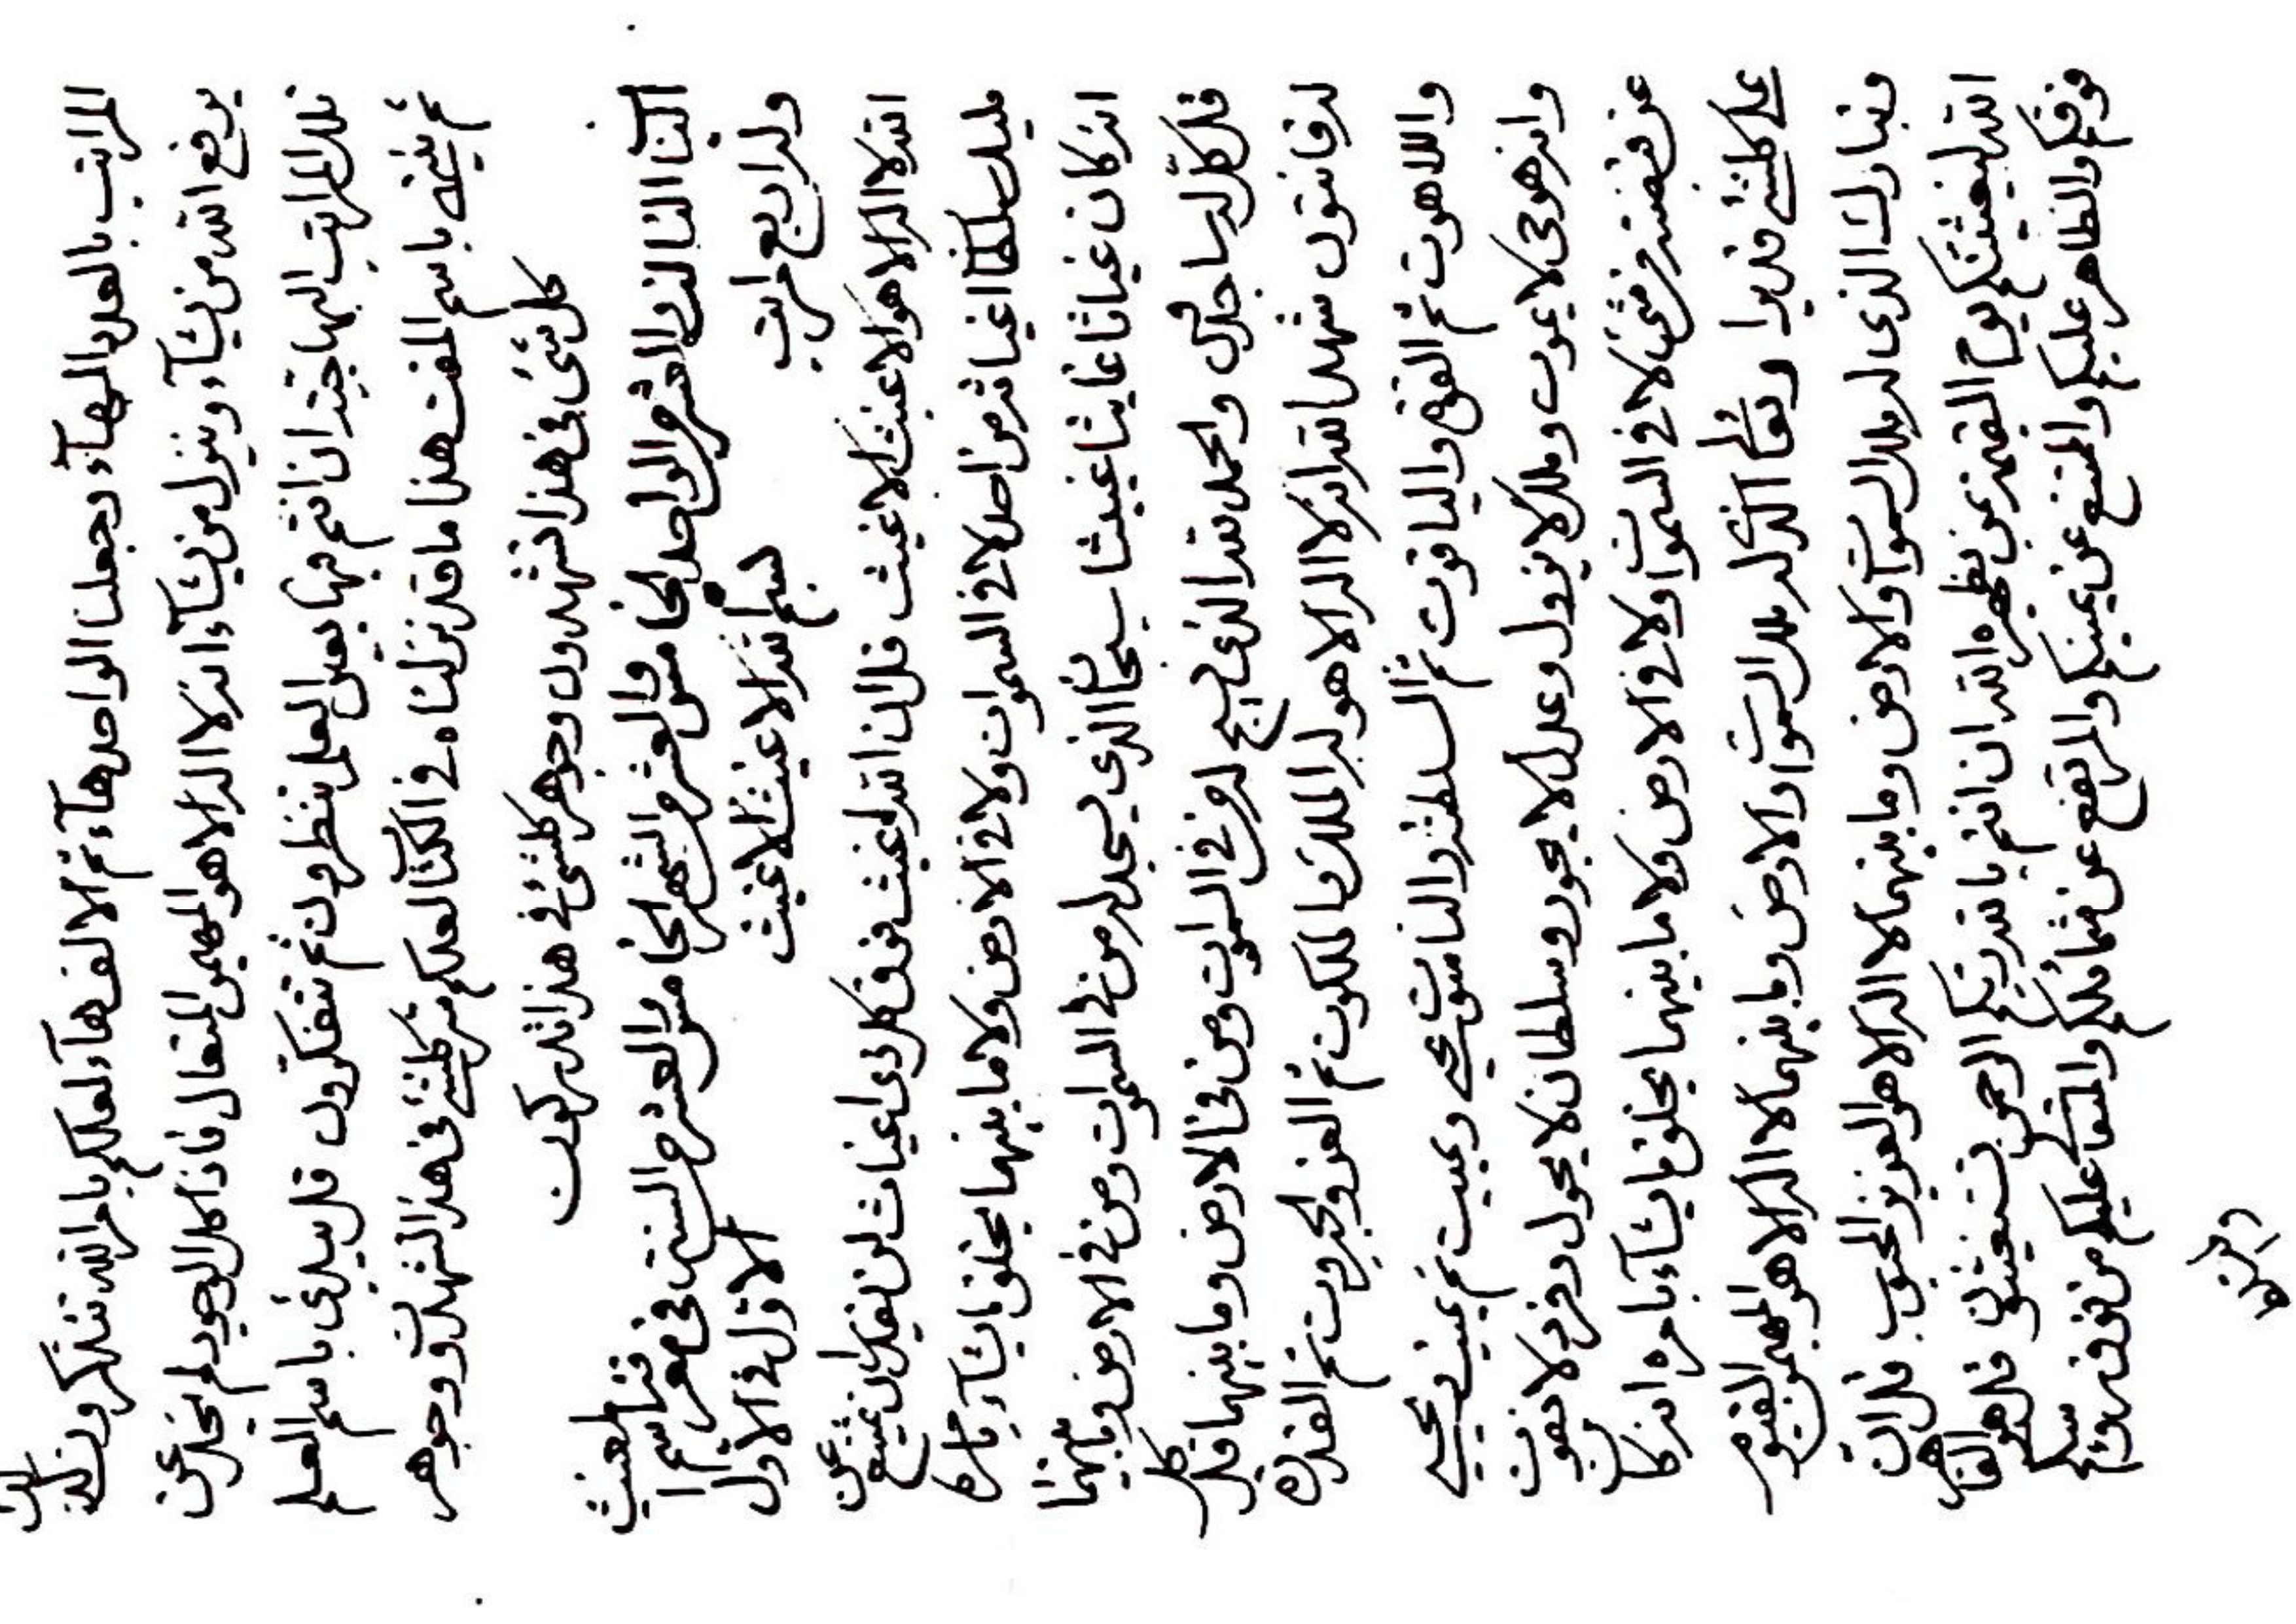 المراتب بالعدد البهآء وجعلنا الواحد هآء ثم الالف هآء لعلكم بامر الله تتذكرون كذلك
يرفع الله من يشآء وينزل من يشآء انه لا اله الا هو المهيمن المتعال فاذا كل الوجود لم يخل عن
تلك المراتب البهاجية ان انتم فيها بعين العلم تنظرون ثم تتفكرون قل يبدئ باسم العلم
ثم ينتهي باسم المغث هذا ما قد نزلناه في الكتاب لعلكم سر كلشئ في هذا تشهدون وجوهر
كل شئ في هذا تشهدون وجوهر كلشئ في هذا تدركون
الباب الثالث والعشر من الواحد الخامس والعشر من الشهر الخامس والعشر من السنة في معرفة اسم المغيث
وله اربع مراتب بسم الله الاغيث الاغيث الاول في الاول
الله لا اله الا هو الاغيث الاغيث قل الله اغيث فوق كل ذي اغياث لن يقدر ان يمتنع عن
مليك سلطان اغياثه من احد لا في السموات ولا في الارض ولا ما بينهما يخلق ما يشآء بامره
انه كان غياثا غايثا غيثا سبحان الذي يسجد له من في السموات ومن في الارض وما بينهما
قل كل له ساجدون والحمد لله الذي يسبح له من في السموات ومن في الارض وما بينهما قل كل
له قانتون شهد الله انه لا اله الا هو له الملك والملكوت ثم العز والجبروت ثم القدرة
واللاهوت ثم القوة والياقوت ثم السلطنة والناسوت يحيي ويميت ثم يميت ويحيي
وانه هو حي لا يموت وملك لا يزول وعدل لا يجور وسلطان لا يحول وفرد لا يفوت
عن قبضته من شئ لا في السموات ولا في الارض ولا ما بينهما يخلق ما يشآء بامره انه كان
على كلشئ قديرا وتعالى الذي له ملك السموات والارض وما بينهما لا اله الا هو المهيمن القيوم
وتبارك الذي له ملك السموات والارض وما بينهما لا اله الا هو العزيز المحبوب قل ان
الله ليغيثنكم يوم القيمة بمن يظهره الله ان انتم بالله ربكم الرحمن تستغيثون قل هو القاهر
فوقكم والظاهر عليكم والممتنع عن يمينكم والمرتفع عن شمائلكم والمتعالي عليكم من فوق رؤسكم